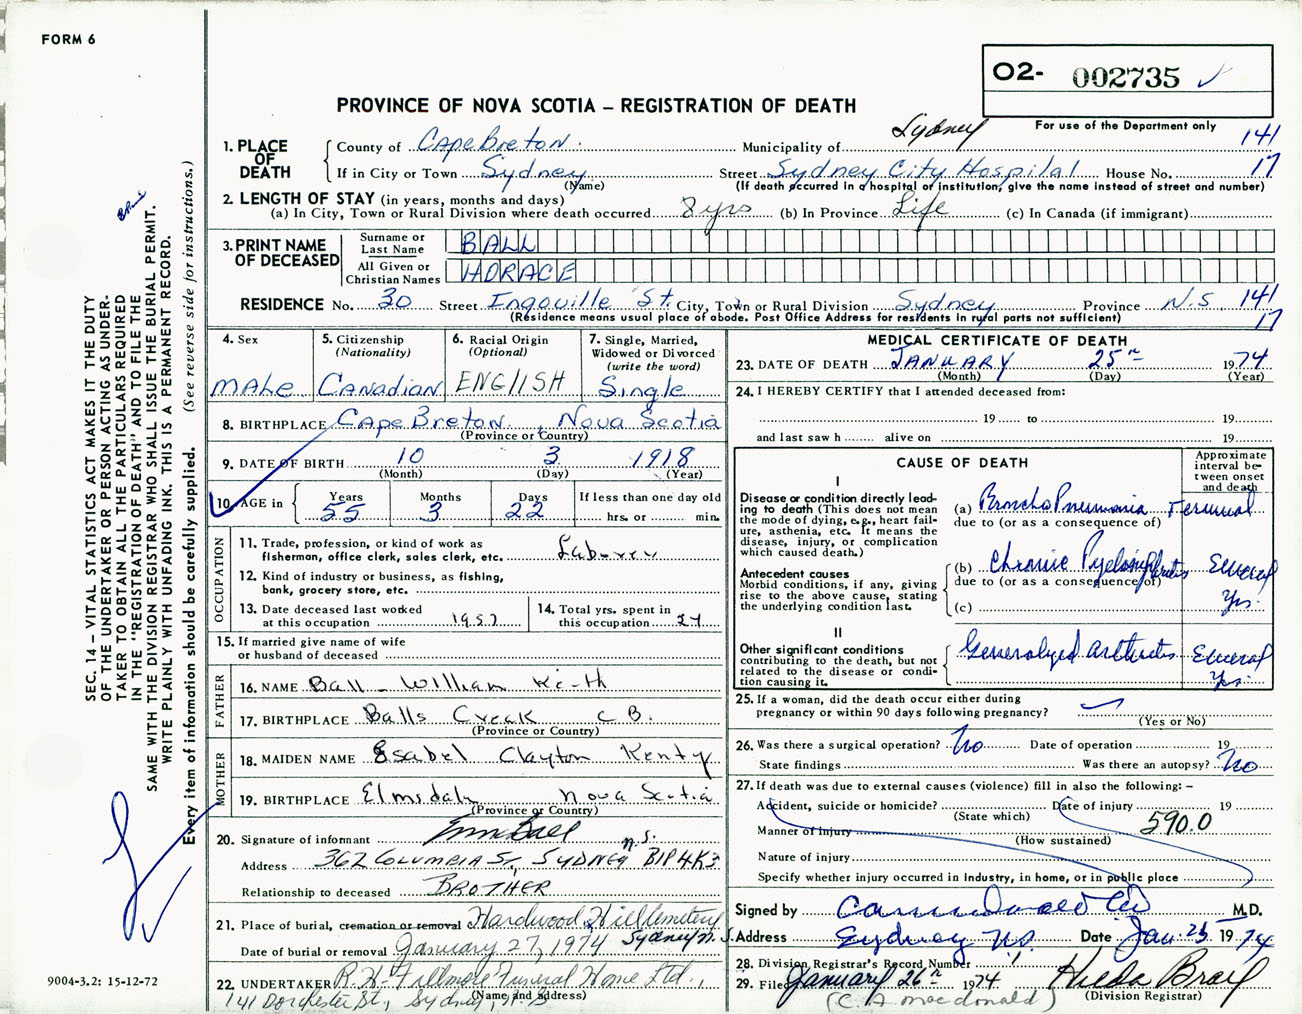 FORM 6
O2- 002735
PROVINCE OF NOVA SCOTIA – REGISTRATION OF DEATH
For use of the Department only
141
17
1. PLACE OF DEATH
County of Cape Breton. Municipality of Sydney
If in City or Town Sydney Street Sydney City Hospital House No.
(Name) (If death occurred in a hospital or institution, give the name instead of street and number)
2. LENGTH OF STAY (in years, months and days)
(a) In City, Town or Rural Division where death occurred 8 yrs (b) In Province Life (c) In Canada (if immigrant)
3. PRINT NAME OF DECEASED
Surname or Last Name BALL
All Given or Christian Names HORACE
RESIDENCE No. 30 Street Ingouville St. City, Town or Rural Division Sydney Province N.S. 141
(Residence means usual place of abode. Post Office Address for residents in rural parts not sufficient) 17
4. Sex
MALe
5. Citizenship
(Nationality)
Canadian
6. Racial Origin
(Optional)
ENGlISH
7. Single, Married,
Widowed or Divorced
(write the word)
Single
8. BIRTHPLACE Cape Breton, Nova Scotia
(Province or Country)
9. DATE OF BIRTH 10 3 1918
(Month) (Day) (Year)
10. AGE in
Years 55
Months 3
Days 22
If less than one day old
hrs. or min.
OCCUPATION
11. Trade, profession, or kind of work as
fisherman, office clerk, sales clerk, etc. Laborer
12. Kind of industry or business, as fishing,
bank, grocery store, etc.
13. Date deceased last worked
at this occupation 1957
14. Total yrs. spent in
this occupation 24
15. If married give name of wife
or husband of deceased
FATHER
16. NAME Ball – William Keith
17. BIRTHPLACE Balls Creek C B.
(Province or Country)
MOTHER
18. MAIDEN NAME Esabel Clayton Kenty
19. BIRTHPLACE Elmsdale Nova Scotia
(Province or Country)
20. Signature of informant Ball
Address 362 COLUMBIA St, SYDNEY N.S. B1P4K3
Relationship to deceased BROTHER
21. Place of burial, cremation or removal Hardwood Hill Cemetery
Sydney N.S.
Date of burial or removal January 27, 1974
22. UNDERTAKER R. H. Fillmore Funeral Home Ltd.,
(Name and address)
141 Dorchester St., Sydney, N.S
MEDICAL CERTIFICATE OF DEATH
23. DATE OF DEATH JANUARY 25th 1974
(Month) (Day) (Year)
24. I HEREBY CERTIFY that I attended deceased from:
19 to 19
and last saw h alive on 19
CAUSE OF DEATH
Approximate interval between onset and death
I
Disease or condition directly leading to death (This does not mean the mode of dying, e.g., heart failure, asthenia, etc. It means the disease, injury, or complication which caused death.)
(a) Broncho Pneumonia Terminal
due to (or as a consequence of)
Antecedent causes
Morbid conditions, if any, giving rise to the above cause, stating the underlying condition last.
(b) Chronic Pyelonephritis Several Yrs.
due to (or as a consequence of)
(c)
II
Other significant conditions
contributing to the death, but not related to the disease or condition causing it.
Generalized arthritis Several Yrs.
25. If a woman, did the death occur either during
pregnancy or within 90 days following pregnancy?
(Yes or No)
26. Was there a surgical operation? No Date of operation 19
State findings Was there an autopsy? No
27. If death was due to external causes (violence) fill in also the following: –
Accident, suicide or homicide? Date of injury 19
(State which)
Manner of injury 590.0
(How sustained)
Nature of injury
Specify whether injury occurred in Industry, in home, or in public place
Signed by M.D.
Address Sydney N.S. Date Jan. 25 1974
28. Division Registrar's Record Number
29. Filed January 26th 1974 Hilda Brail
(C. A. MacDonald) (Division Registrar)
SEC. 14 – VITAL STATISTICS ACT MAKES IT THE DUTY
OF THE UNDERTAKER OR PERSON ACTING AS UNDER-
TAKER TO OBTAIN ALL THE PARTICULARS REQUIRED
IN THE "REGISTRATION OF DEATH" AND TO FILE THE
SAME WITH THE DIVISION REGISTRAR WHO SHALL ISSUE THE BURIAL PERMIT.
WRITE PLAINLY WITH UNFADING INK. THIS IS A PERMANENT RECORD.
Every item of information should be carefully supplied. (See reverse side for instructions.)
9004-3.2: 15-12-72